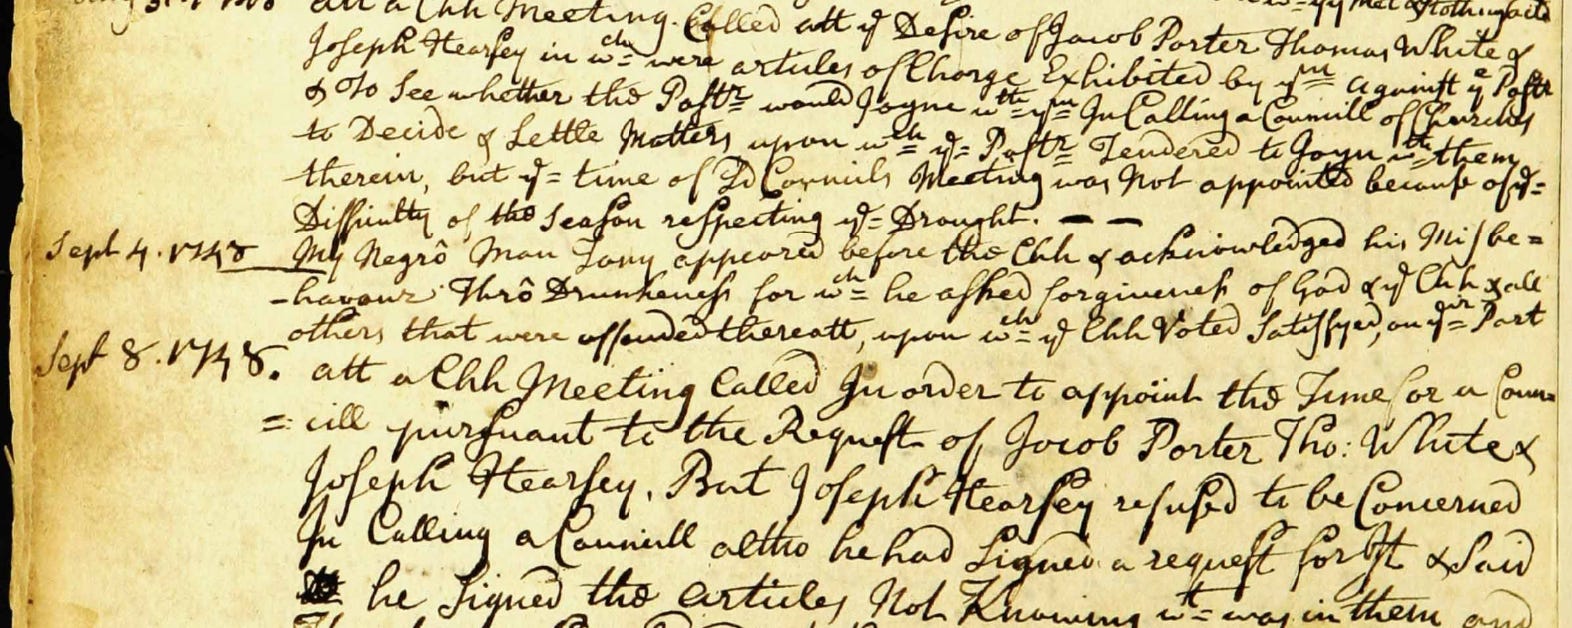 att a Chh Meeting. Called att yͤ Desire of Jacob Porter Thomas White &
Joseph Hearsey in wch were articles of Charge Exhibited by ym against ye Pastr
& To See whether the Pastr would Joyne wth ym In Calling a Councill of Churches
to Decide & Settle Matters upon wch ye= Pastr Tendered to Joyn wth them
therein, but ye= time of Sd Councils Meeting was Not appointed because of ye=
Difficulty of the Season respecting ye= Drought. — —
Sept 4. 1748 My Negrô Man Tony appeared before the Chh & acknowledged his Misbe=
-havour Thrô Drunkeness for wch= he asked forgiveness of God & ye Chh & all
others that were offended thereatt, upon wch= ye Chh Voted Satisfyed, on yeir= Part
Sept 8. 1748. att a Chh Meeting Called In order to appoint the Time for a Coun=
=cill pursuant to the Request of Jacob Porter Tho: White &
Joseph Hearsey, But Joseph Hearsey refused to be Concerned
In Calling a Councill altho he had Signed a request for It & Said
he Signed the articles Not Knowing wt= was in them and